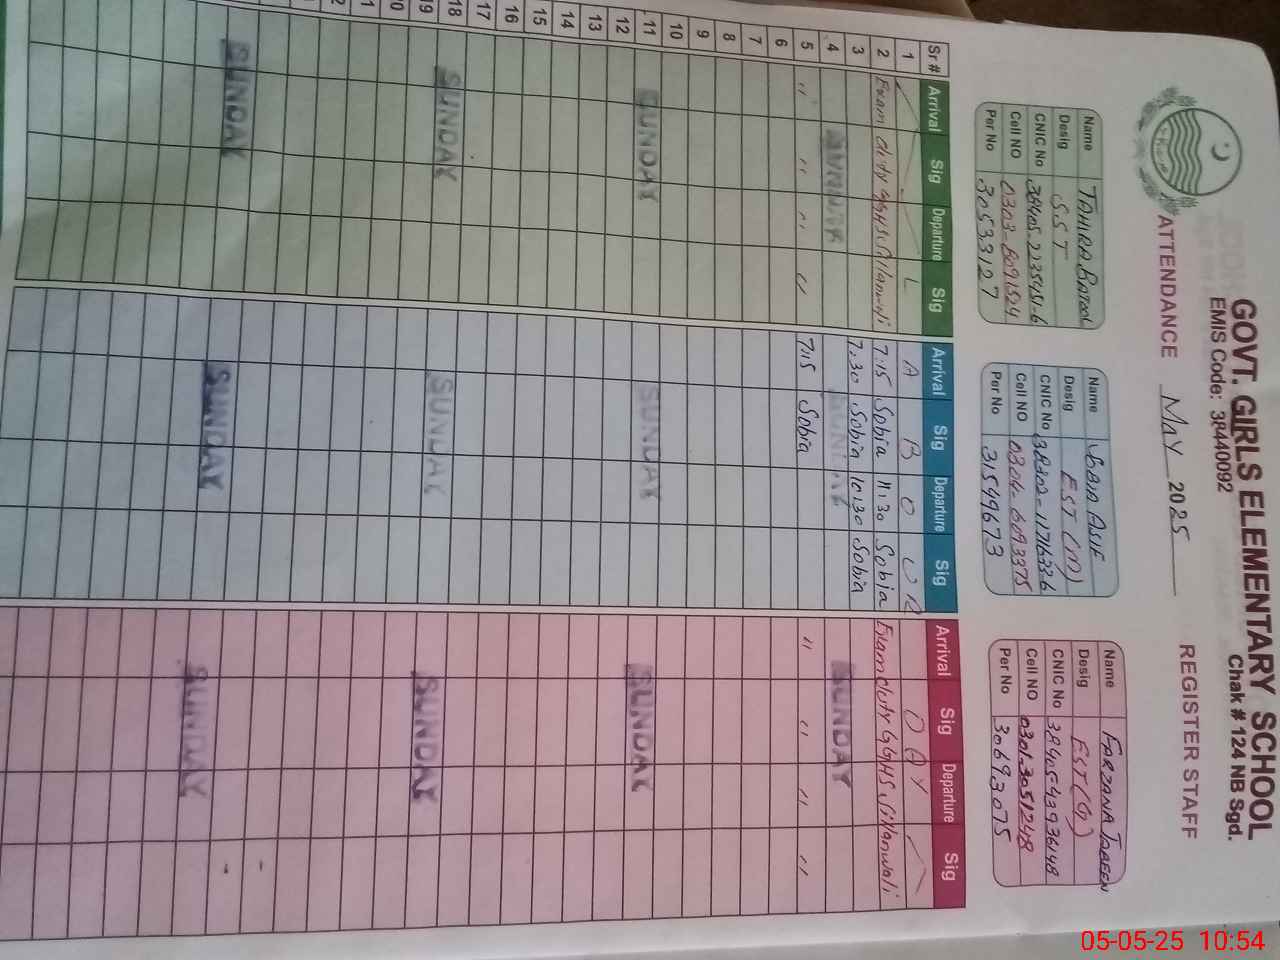 GOVT. GIRLS ELEMENTARY SCHOOL
EMIS Code: 38440092 Chak # 124 NB Sgd.
ATTENDANCE May 2025 REGISTER STAFF
Name TAHIRA BATOOL
Desig SST
CNIC No
Cell NO
Per No 30533127
Name SOBIA ASIF
Desig EST (M)
CNIC No
Cell NO 0304-6093375
Per No 31549673
Name FARZANA JABEEN
Desig EST (G)
CNIC No 3840543936148
Cell NO 0301-3051248
Per No 30693075
Sr# Arrival Sig Departure Sig Arrival Sig Departure Sig Arrival Sig Departure Sig
1 L A B O U R D A Y
2 Exam duty GGHS Sillanwali 7:15 Sobia 11:30 Sobia Exam duty GGHS Sillanwali
3 7:30 Sobia 10:30 Sobia
4 SUNDAY SUNDAY SUNDAY
5 " " " " 7:15 Sobia " " " "
6
7
8
9
10
11 SUNDAY SUNDAY SUNDAY
12
13
14
15
16
17
18 SUNDAY SUNDAY SUNDAY
19
20
SUNDAY SUNDAY SUNDAY
05-05-25 10:54